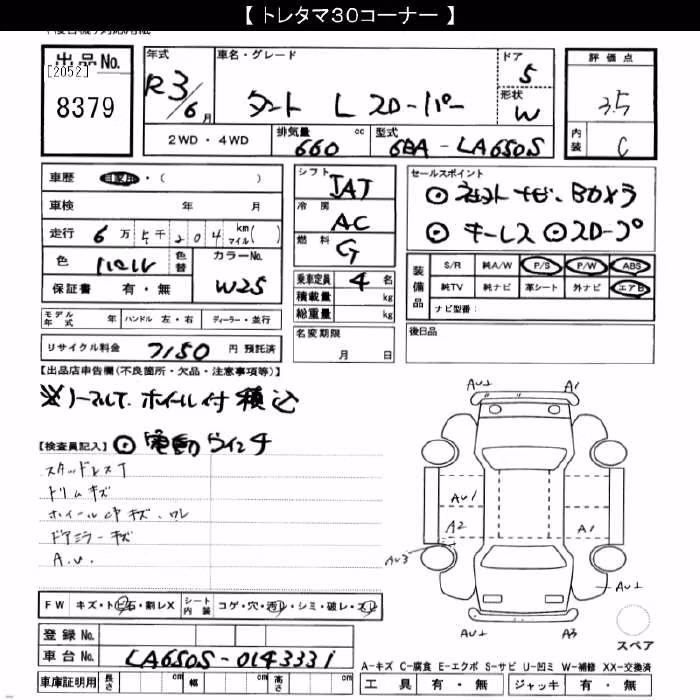 【 トレタマ30コーナー 】
出品No.
[2052]
8379
年式
R3/6月
車名・グレード
タント L スローパー
ドア
5
形状
W
評価点
3.5
内装
C
2WD ・ 4WD
排気量 cc
660
型式
6BA - LA650S
車歴 自家用 ・( )
車検 年 月
走行 6万5千204 km マイル( )
色 パール 色替
カラーNo.
W25
保証書 有 ・ 無
シフト
IAT
冷房
AC
燃料
G
乗車定員 4 名
積載量 kg
総重量 kg
セールスポイント
⊙ ナビ、Bカメラ
⊙ キーレス ⊙スロープ
装備品
S/R 純A/W P/S P/W ABS
純TV 純ナビ 革シート 外ナビ エアB
ナビ型番：
モデル年式 年 ハンドル 左・右 ディーラー・並行
名変期限
月 日
後日品
リサイクル料金 7150 円 預託済
【出品店申告欄(不良箇所・欠品・注意事項等)】
※ノーマルT、ホイール付 積込
【検査員記入】 ⊙ 電動ウインチ
スタッドレスT
トリムキズ
ホイールCPキズ、ワレ
ドアミラーキズ
A.U.
AU1
A1
AU1
A2
A1
AU3
AU1
AU1
A3
スペア
FW キズ・トビ石・割レX シート内装 コゲ・穴・汚レ・シミ・破レ・スレ
登録No.
車台No. LA650S-0143331
車庫証明用 長さ cm 幅 cm 高さ cm
A-キズ C-腐食 E-エクボ S-サビ U-凹ミ W-補修 XX-交換済
工具 有 ・ 無 ジャッキ 有 ・ 無